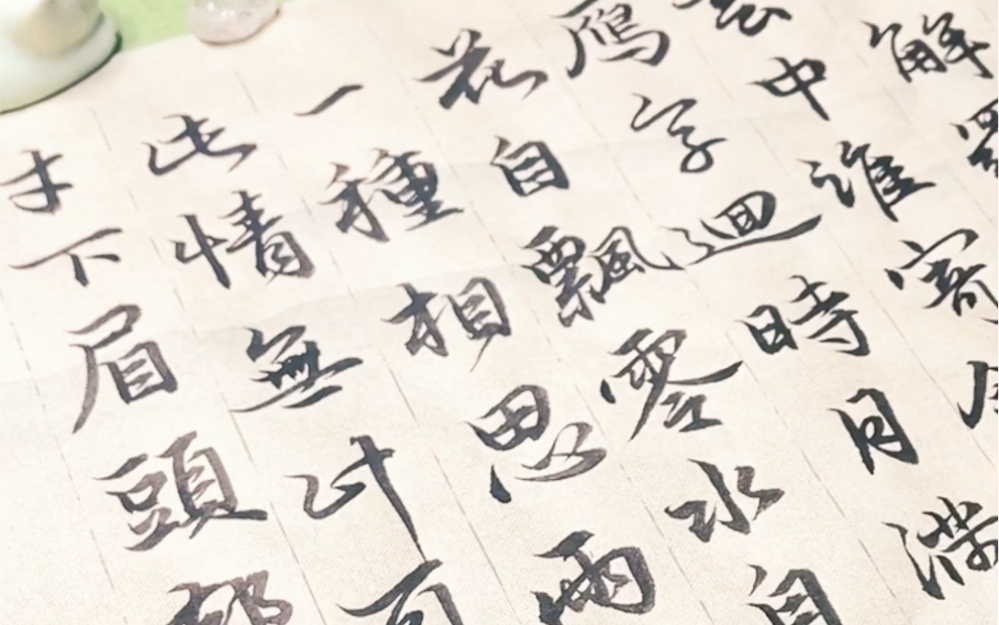 解
中誰寄
鴈字迴時月滿
花自飄零水自
一種相思兩
此情無計可
才下眉頭